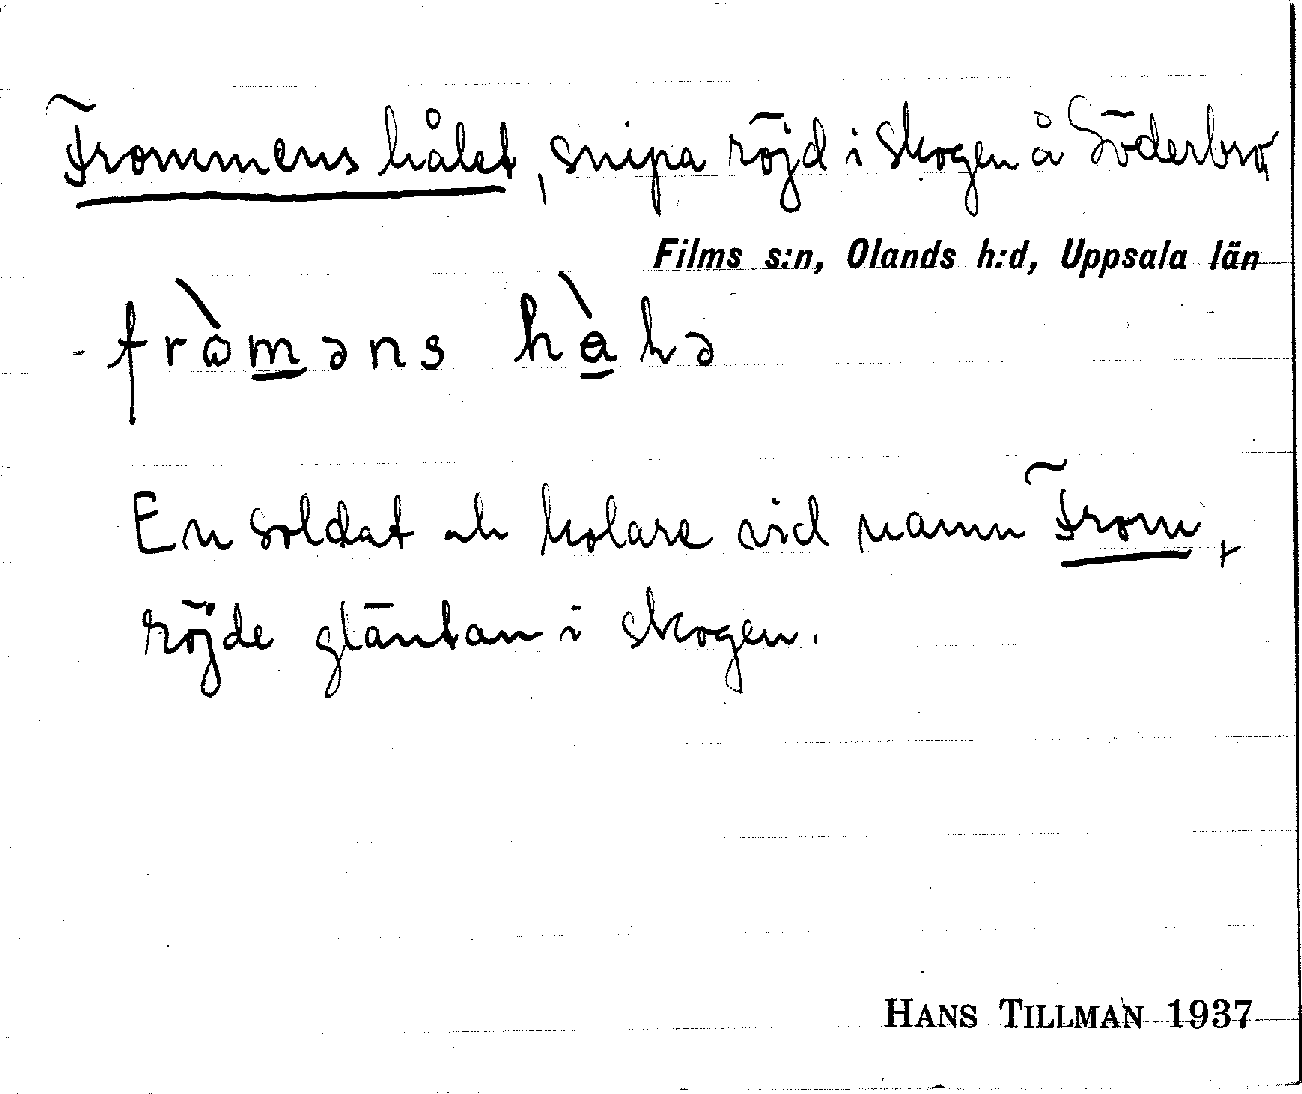 Frommens hålet, snipa röjd i skogen å Söderbro
Films s:n, Olands h:d, Uppsala län
- fròməns hàlə
En soldat och kolare vid namn From,
röjde gläntan i skogen.
HANS TILLMAN 1937